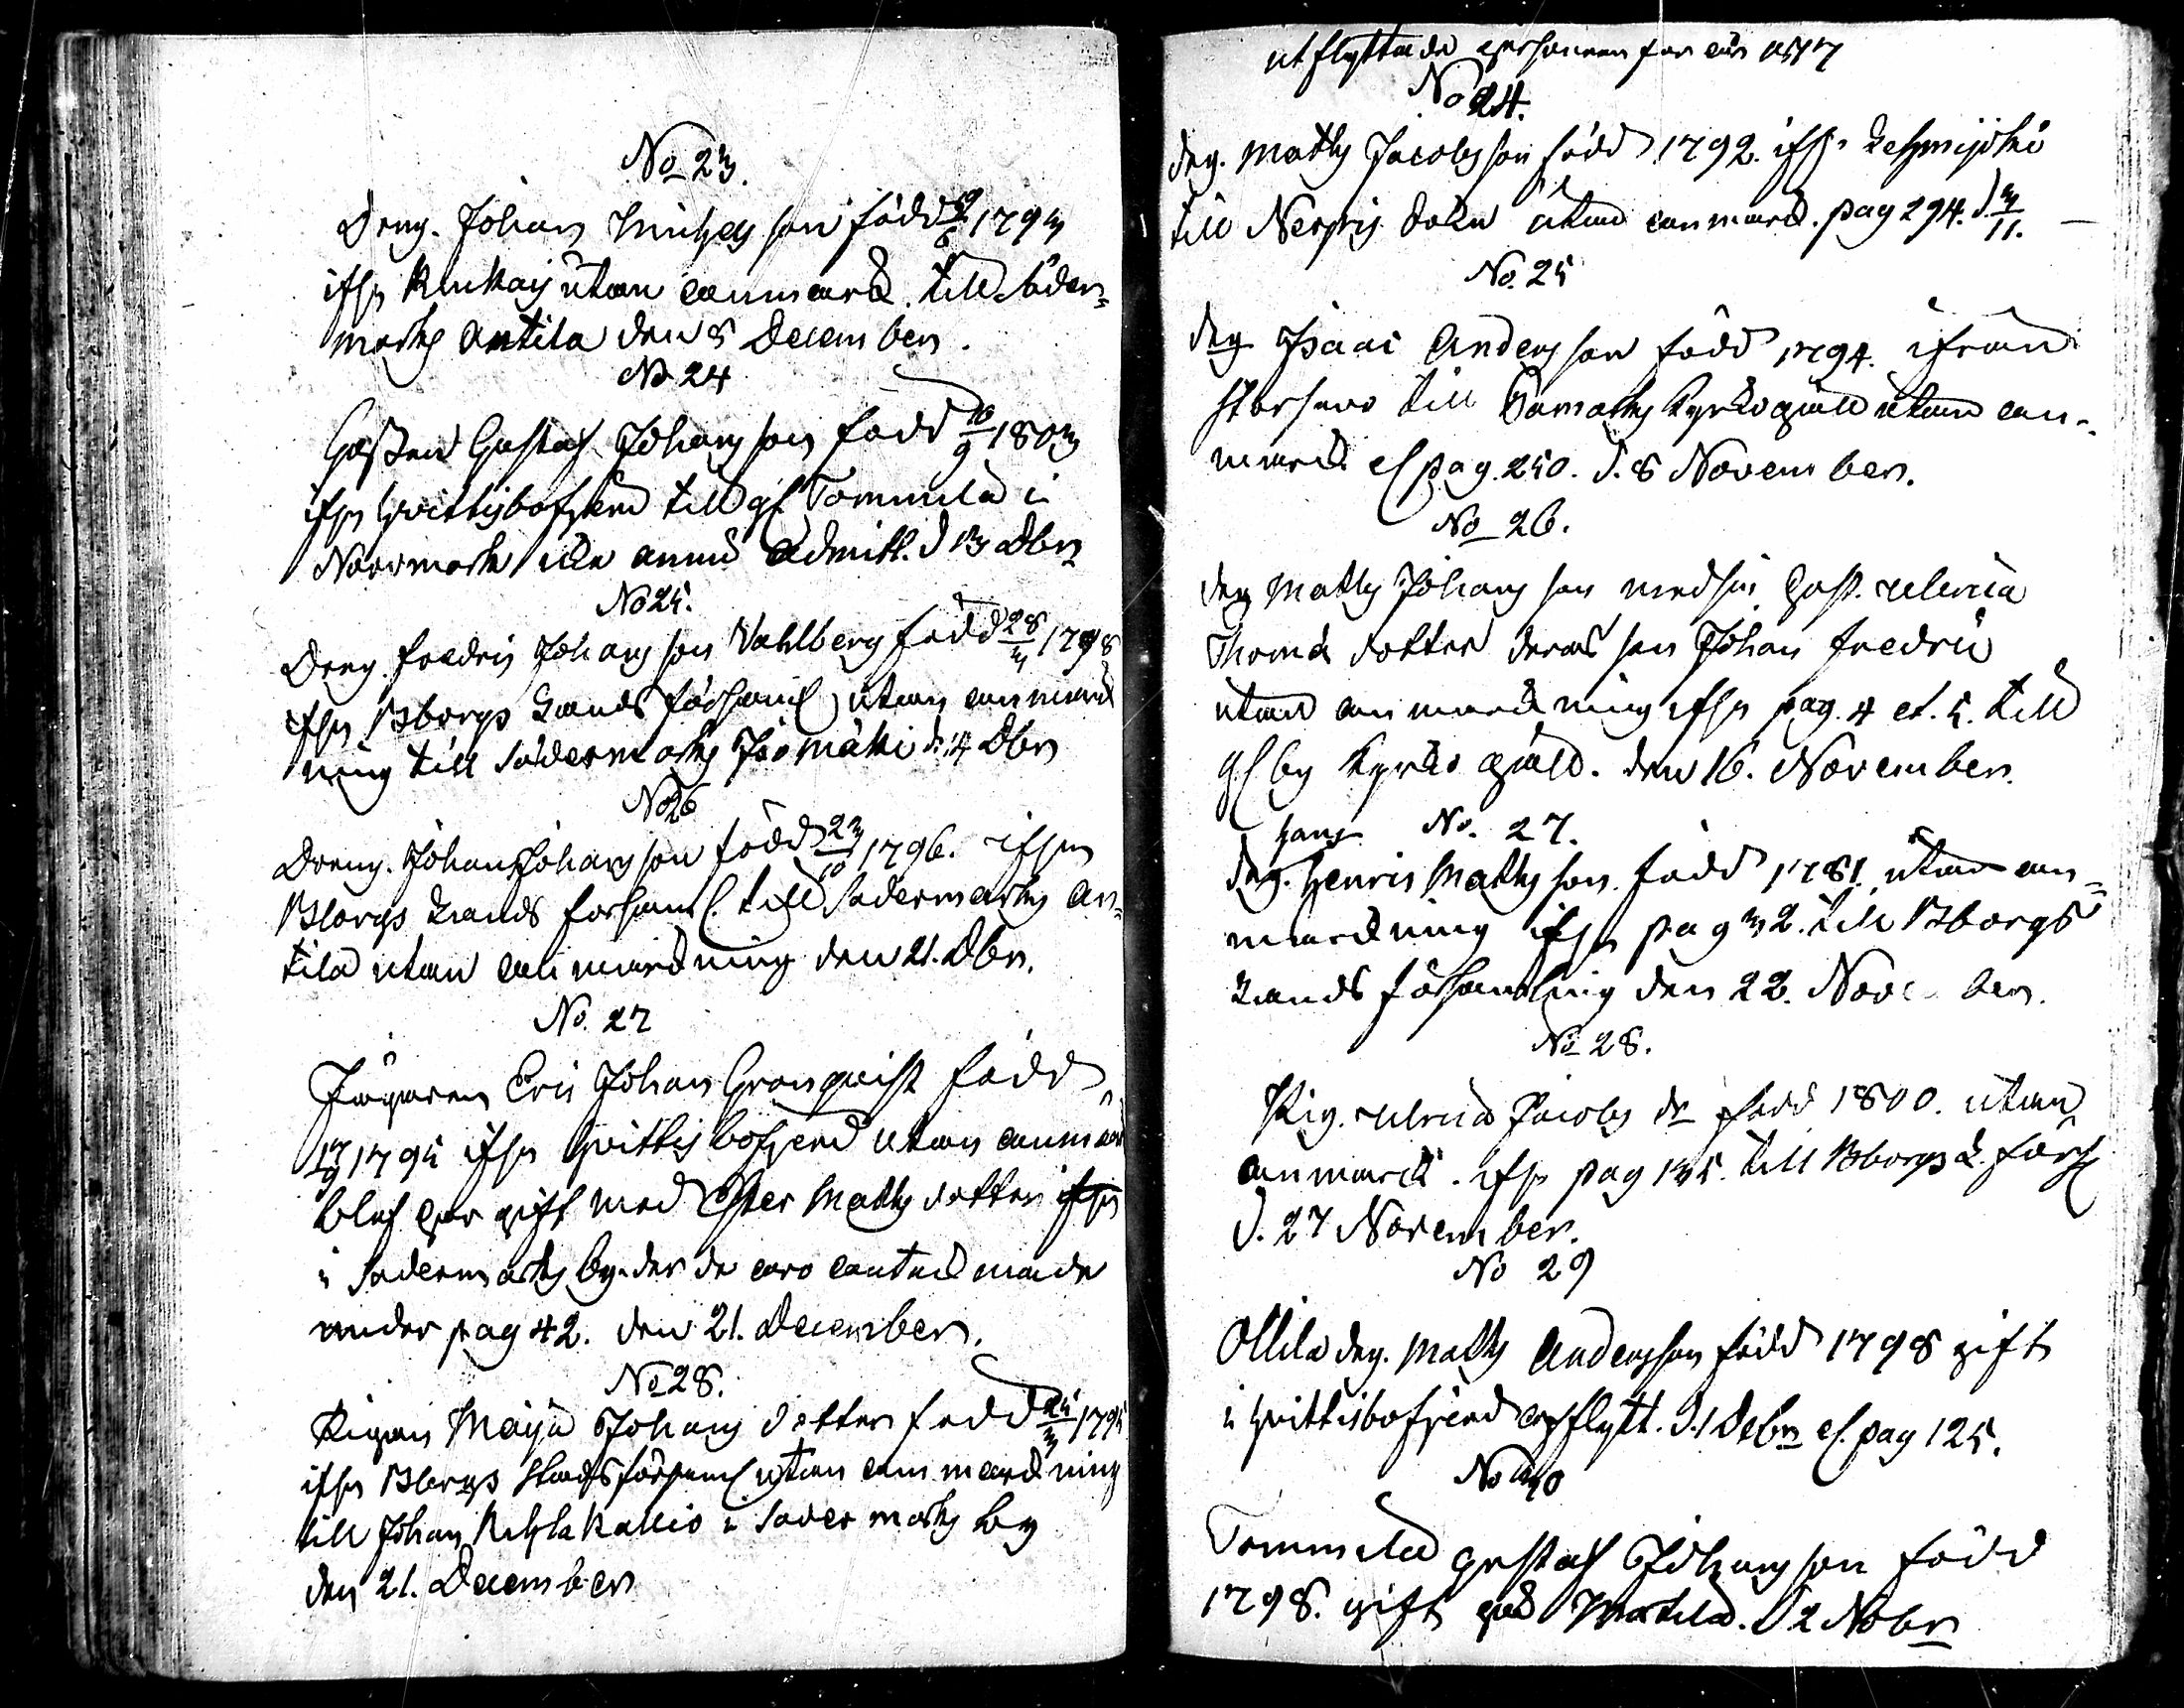 No 23.
Dreng. Johan Michelsson född 9/6 1793
ifrån utan anmärk. till Söder-
marks Antila den 8 December.
No 24
Gossen Gustaf Johansson född 16/9 1803
ifrån Hvittisbofjerd till gl Tommila i
Norrmark admitt. d 13 Dbr
No 25.
Dreng. Fredric Johansson Vahlberg född 28/3 1798
ifrån Bborgs Lands församl utan anmärk
ning till Södermarks Isomäki d. 14 Dbr
No 26
Dreng. Johan Johansson född 23/10 1796. ifrån
Bborgs Lands församl. till Södermarks An-
tila utan anmärkning den 21. Dbr.
No. 27
Jägaren Eric Johan Granqvist född
17/9 1795 ifrån Hvittisbofjerd utan anmärk
blef här gift med Ester Matts dotter ifrån
i Södermarks by. der de äro antecknade
under pag 42. den 21. December.
No 28.
Pigan Maija Johans dotter född 25/3 1795
ifrån Bborgs Stadsförsaml utan anmärkning
till Johan i Södermarks by
den 21. December
utflyttade personer för år 1817
No 24.
drg. Matts Jacobsson född 1792. ifrån
till utan anmärk. pag 294. d. 3/11.
No. 25
drg Isaac Andersson född 1794. ifrån
till Kyrkogiäll utan an-
märk cf pag. 250. d. 8 November.
No 26.
drg Matts Johansson med sin hust. Ulrica
Thomas dotter deras son Johan Fredric
utan anmärkning ifrån pag. 4 et. 5. till
Ulfsby Kyrko giäld. den 16. November.
No. 27.
drg. Henric Mattsson född 1781. utan an-
märkning ifrån pag 32. till Bborgs
Lands församling den 22. November.
No 28.
Pig. Ulrica Jacobs dr född 1800. utan
anmärk. ifrån pag 135. till Bborgs L. förs
d. 27 November.
No 29
Ollila drg. Matts Andersson född 1798 gift
i Hvittisbofjerd afflytt. d. 1 Debr cf. pag 125.
No 30
Tommila Gustaf Johansson född
1798. gift på Martila. d 2 Nobr